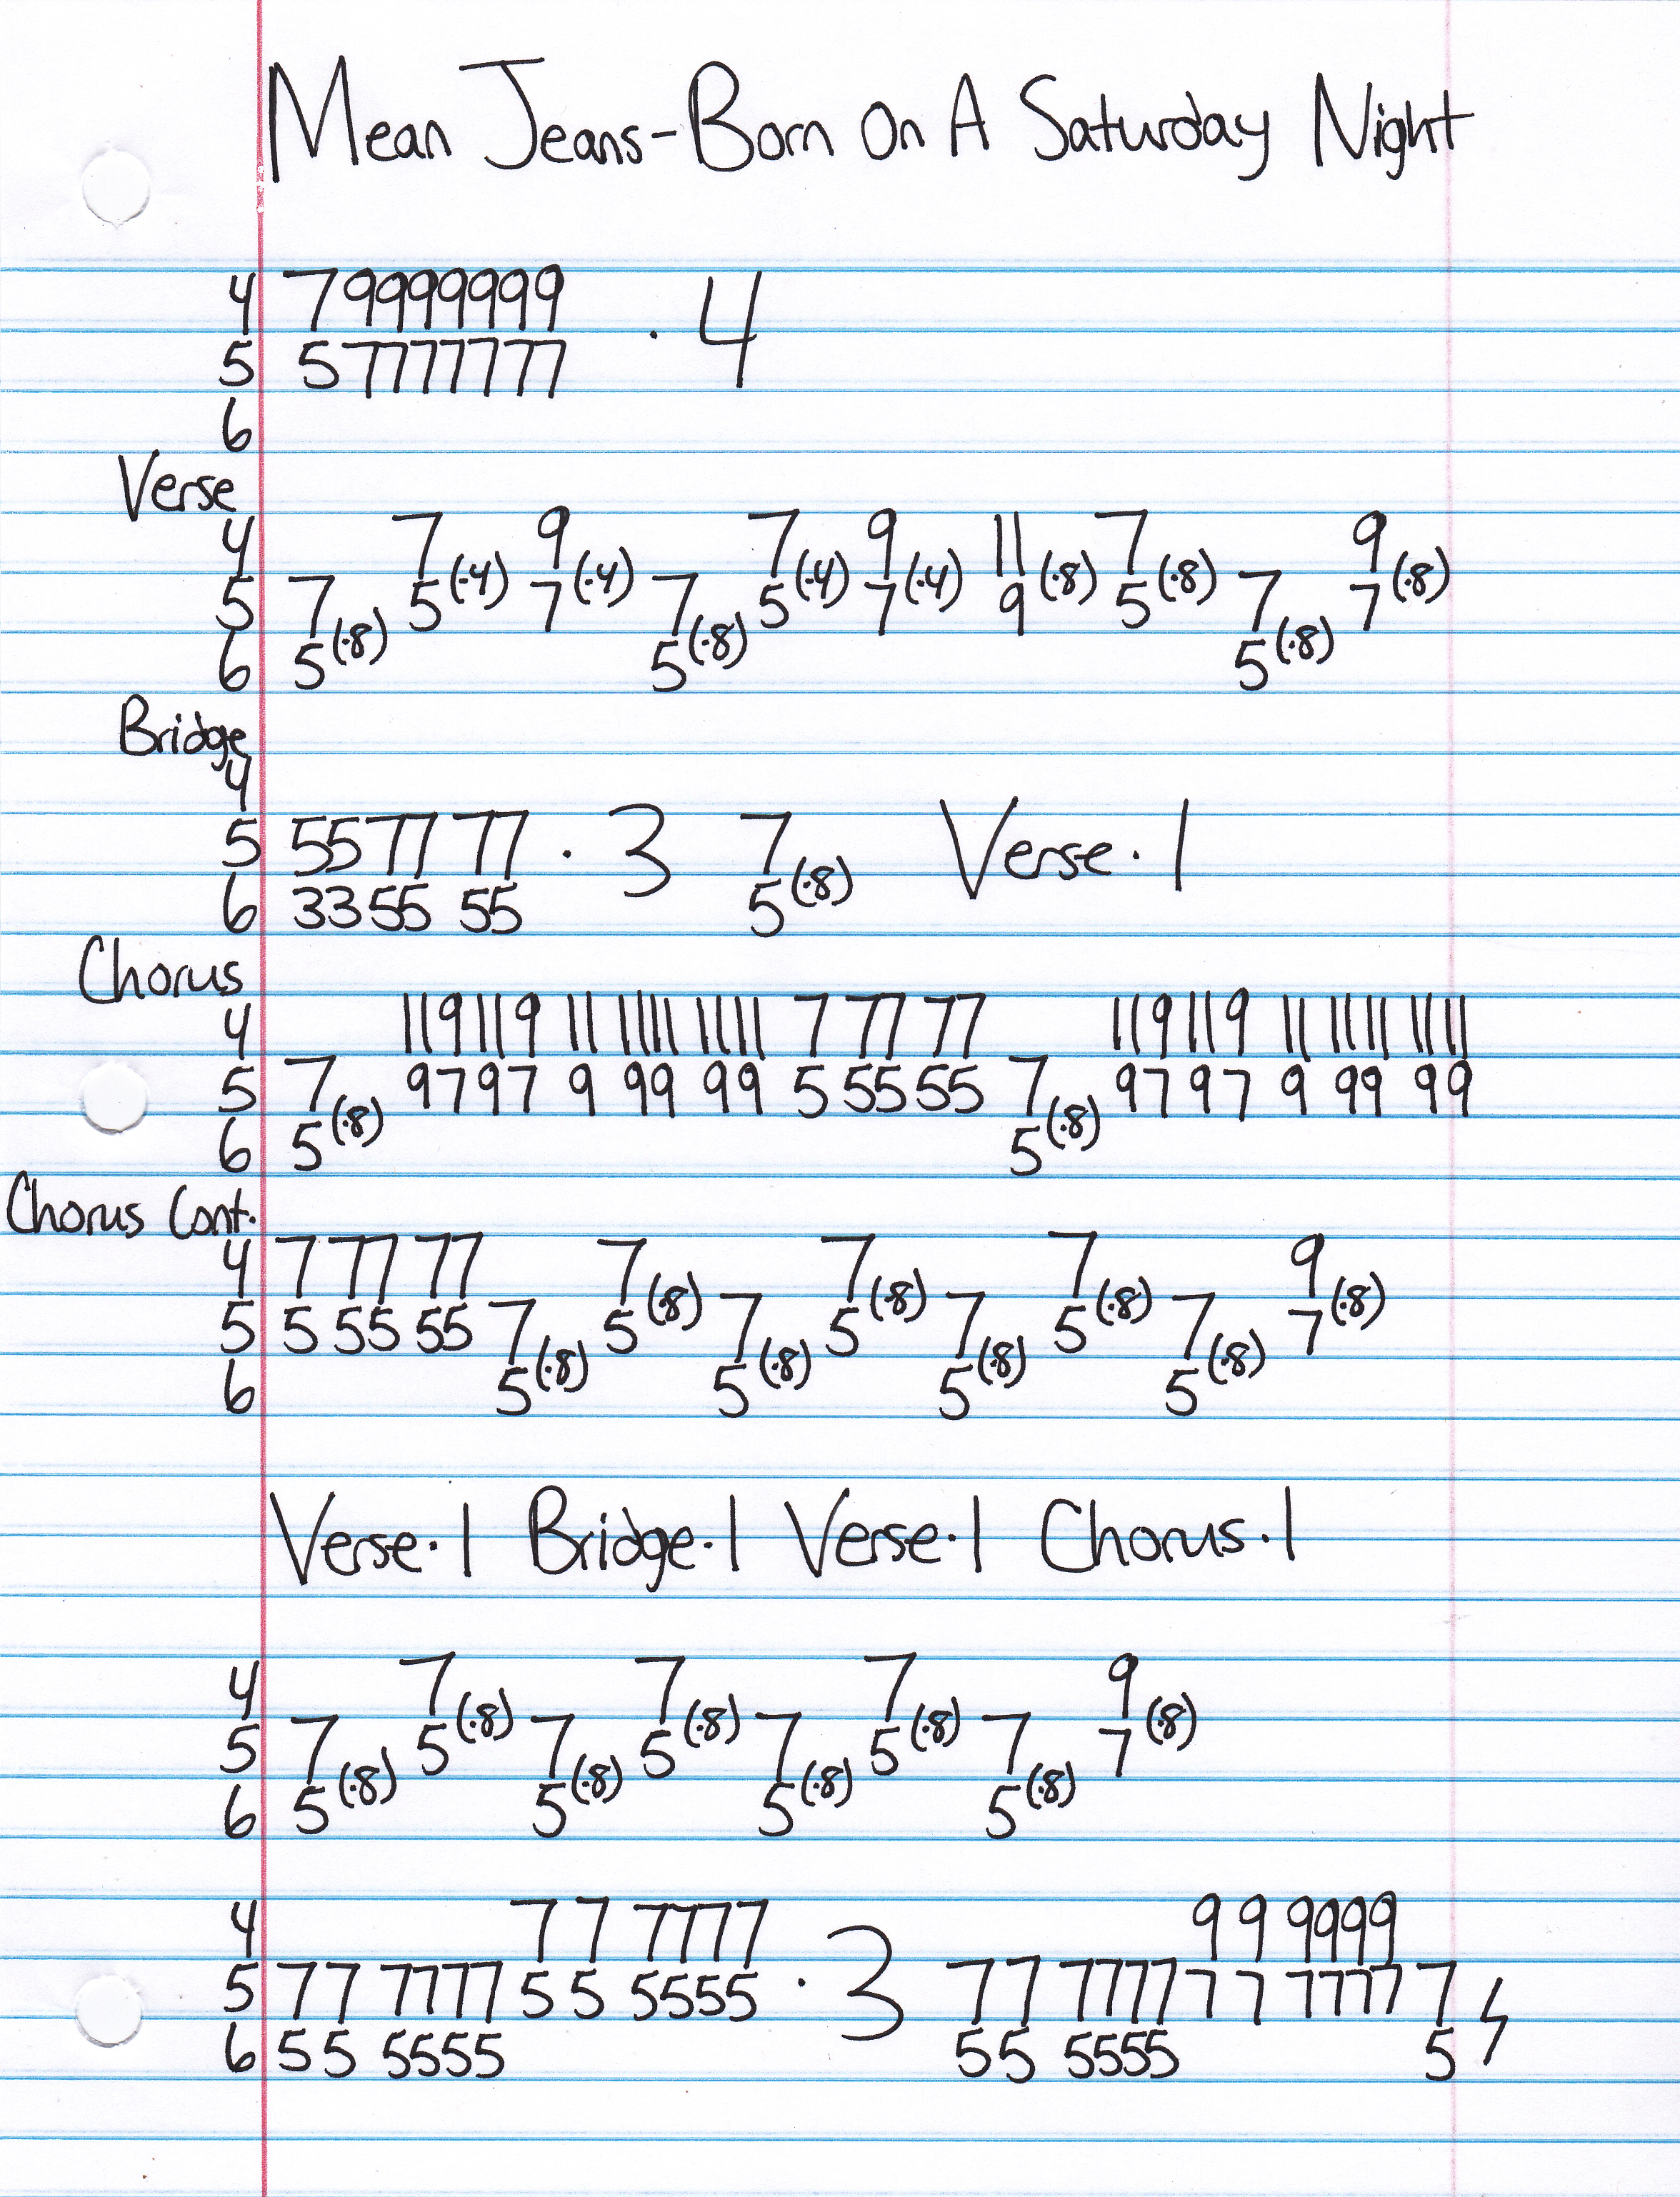 Mean Jeans-Born On A Saturday Night
4 7 9999999
5 5 7777777 · 4
6
Verse
4 7 9 7 9 11 7 9
5 7 5(·4) 7(·4) 7 5(·4) 7(·4) 9(·8) 5(·8) 7 7(·8)
6 5(·8) 5(·8) 5(·8)
Bridge
4
5 5577 77 · 3 7 Verse·1
6 3355 55 5(·8)
Chorus
4 119119 11 1111 1111 7 77 77 119119 11 1111 1111
5 7 9797 9 99 99 5 55 55 7 9797 9 99 99
6 5(·8) 5(·8)
Chorus Cont.
4 7 77 77 7 7 7 9
5 5 55 55 7 5(·8) 7 5(·8) 7 5(·8) 7 7(·8)
6 5(·8) 5(·8) 5(·8) 5(·8)
Verse·1 Bridge·1 Verse·1 Chorus·1
4 7 7 7 9
5 7 5(·8) 7 5(·8) 7 5(·8) 7 7(·8)
6 5(·8) 5(·8) 5(·8) 5(·8)
4 7 7 7777 9 9 9999
5 77 7777 5 5 5555 · 3 77 7777 7 7 7777 7
6 55 5555 55 5555 5